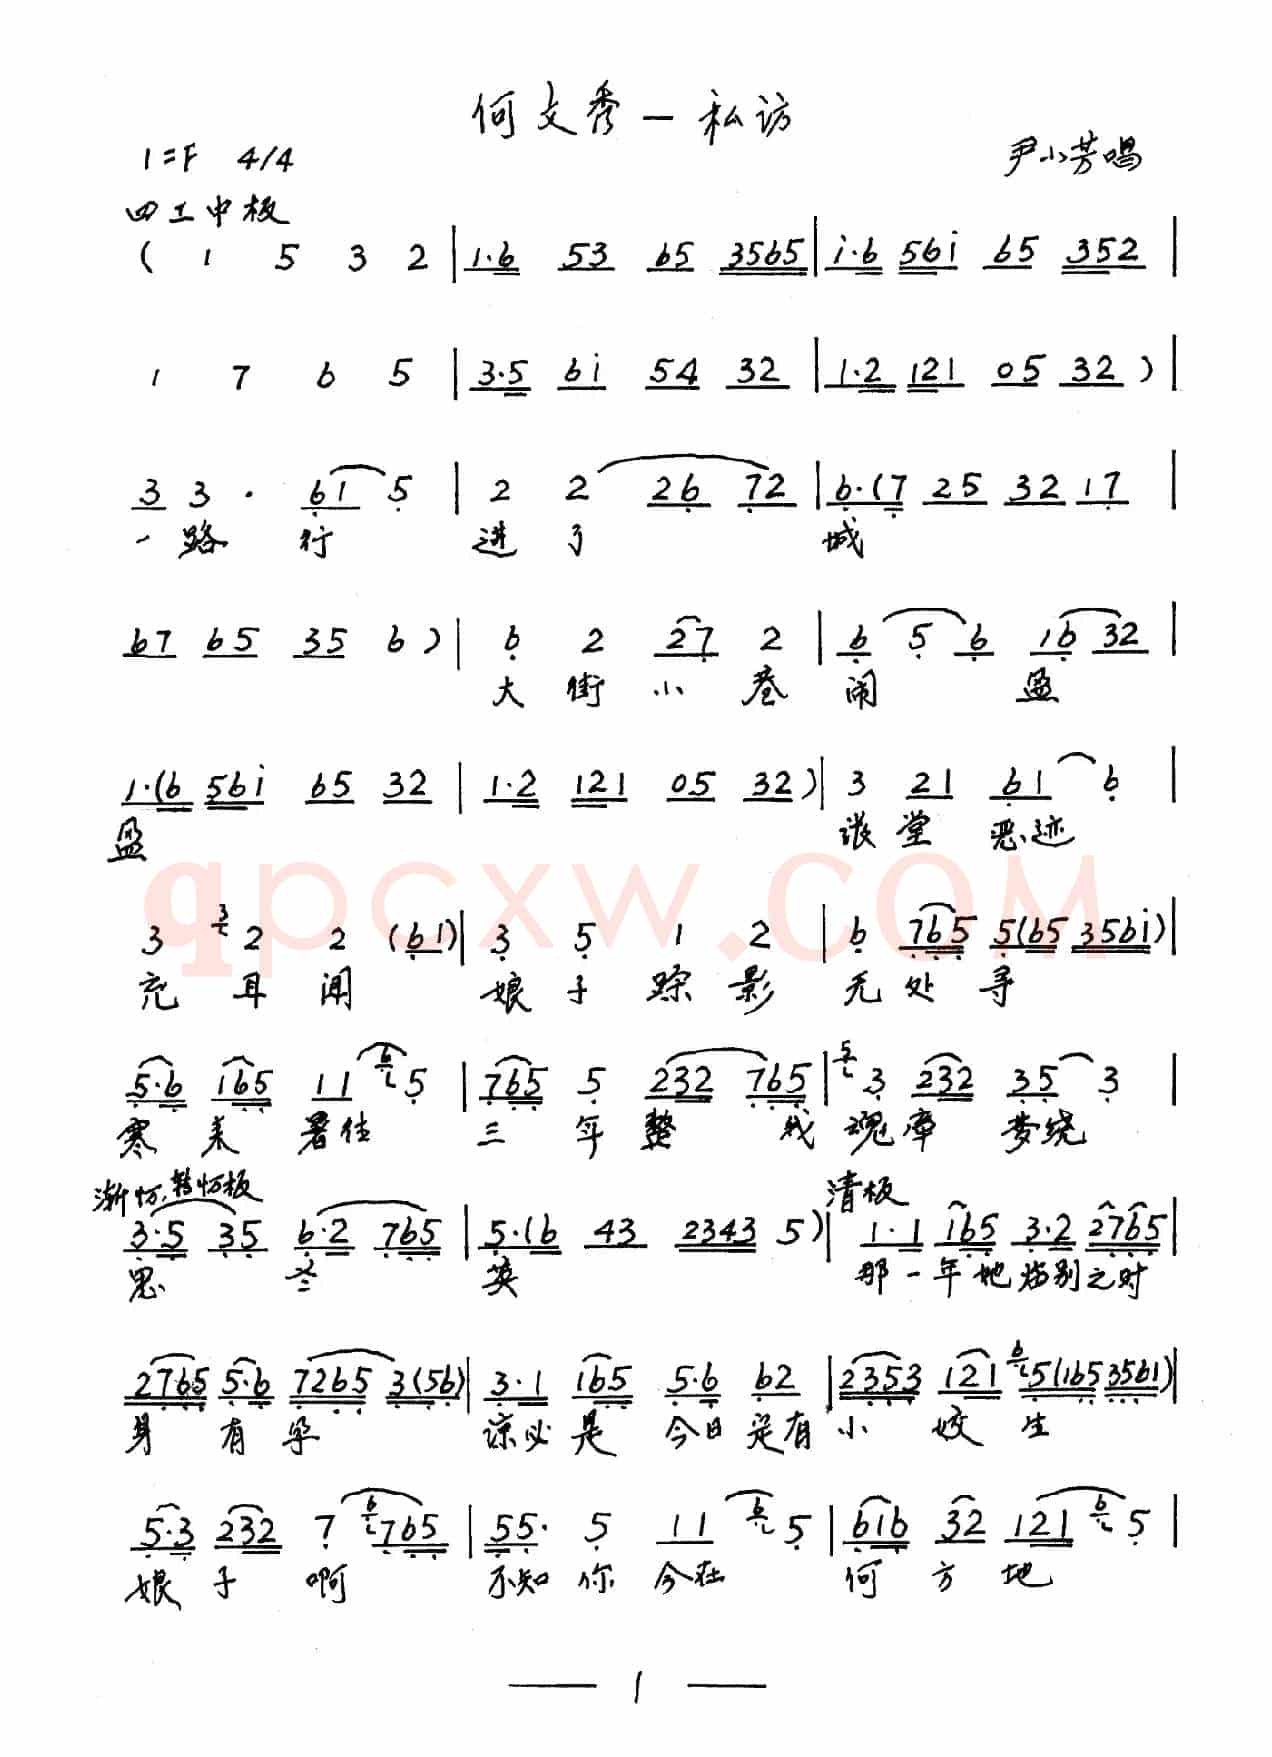 何文秀－私访
1=F 4/4
尹小芳唱
四工中板
( 1 5 3 2 | 1·6 53 65 3565 | i·6 56i 65 352 |
1 7 6 5 | 3·5 6i 54 32 | 1·2 121 05 32 ) |
3 3· 61 5 | 2 2 26 72 | 6·(7 25 32 17 |
一路行 进了 城
67 65 35 6 ) | 6 2 27 2 | 6 5 6 16 32 |
大街小巷 闹 盈
1·(6 56i 65 32 | 1·2 121 05 32 ) | 3 21 61 6 |
盈 张堂恶迹
qpcxw.COM
3 3 2 2 (61) | 3 5 1 2 | 6 765 5(65 356i) |
充耳闻 娘子踪影 无处寻
5·6 165 11 6 5 | 765 5 232 765 | 5 3 232 35 3 |
寒来暑往 三年整 我魂牵梦绕
渐忄 转忄板 清板
3·5 35 6·2 765 | 5·(6 43 2343 5 ) | 1·1 165 3·2 2765 |
思 兰 英 那一年她 别之时
2765 5·6 7265 3(56) | 3·1 165 5·6 62 | 2353 121 6 5(165 3561) |
身有孕 谅必是今日定有小姣生
5·3 232 7 6 765 | 55· 5 11 6 5 | 616 32 121 6 5 |
娘子啊 不知你今在 何方地
— 1 —